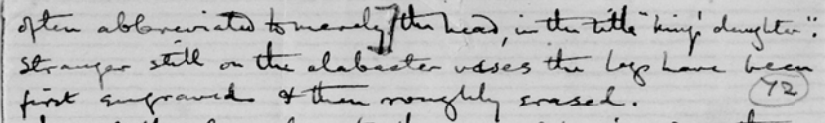 often abbreviated to merely the head, in the title "king's daughter".
Stranger still on the alabaster vases the legs have been
first engraved & then roughly erased. 72